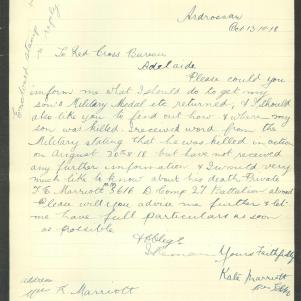 Enclosed stamp
for reply
Ardrossan
Oct 13-10-18
To Red Cross Bureau
Adelaide
Please could you
inform me what I should do to get my
son's Military Medal etc returned, & I should
also like you to find out how & where my
son was killed. I received word from the
Military stating that he was killed in action
on August 30th 8-18 but have not received
any further information & I would very
much like to know about his death Private
T.E. Marriott 3616 D Comp 27 Battalion abroad
Please will you advise me further & let
me have full particulars as soon
as possible
& Oblige
I Remain Yours Faithfully
Kate Marriott
address
Mrs K. Marriott